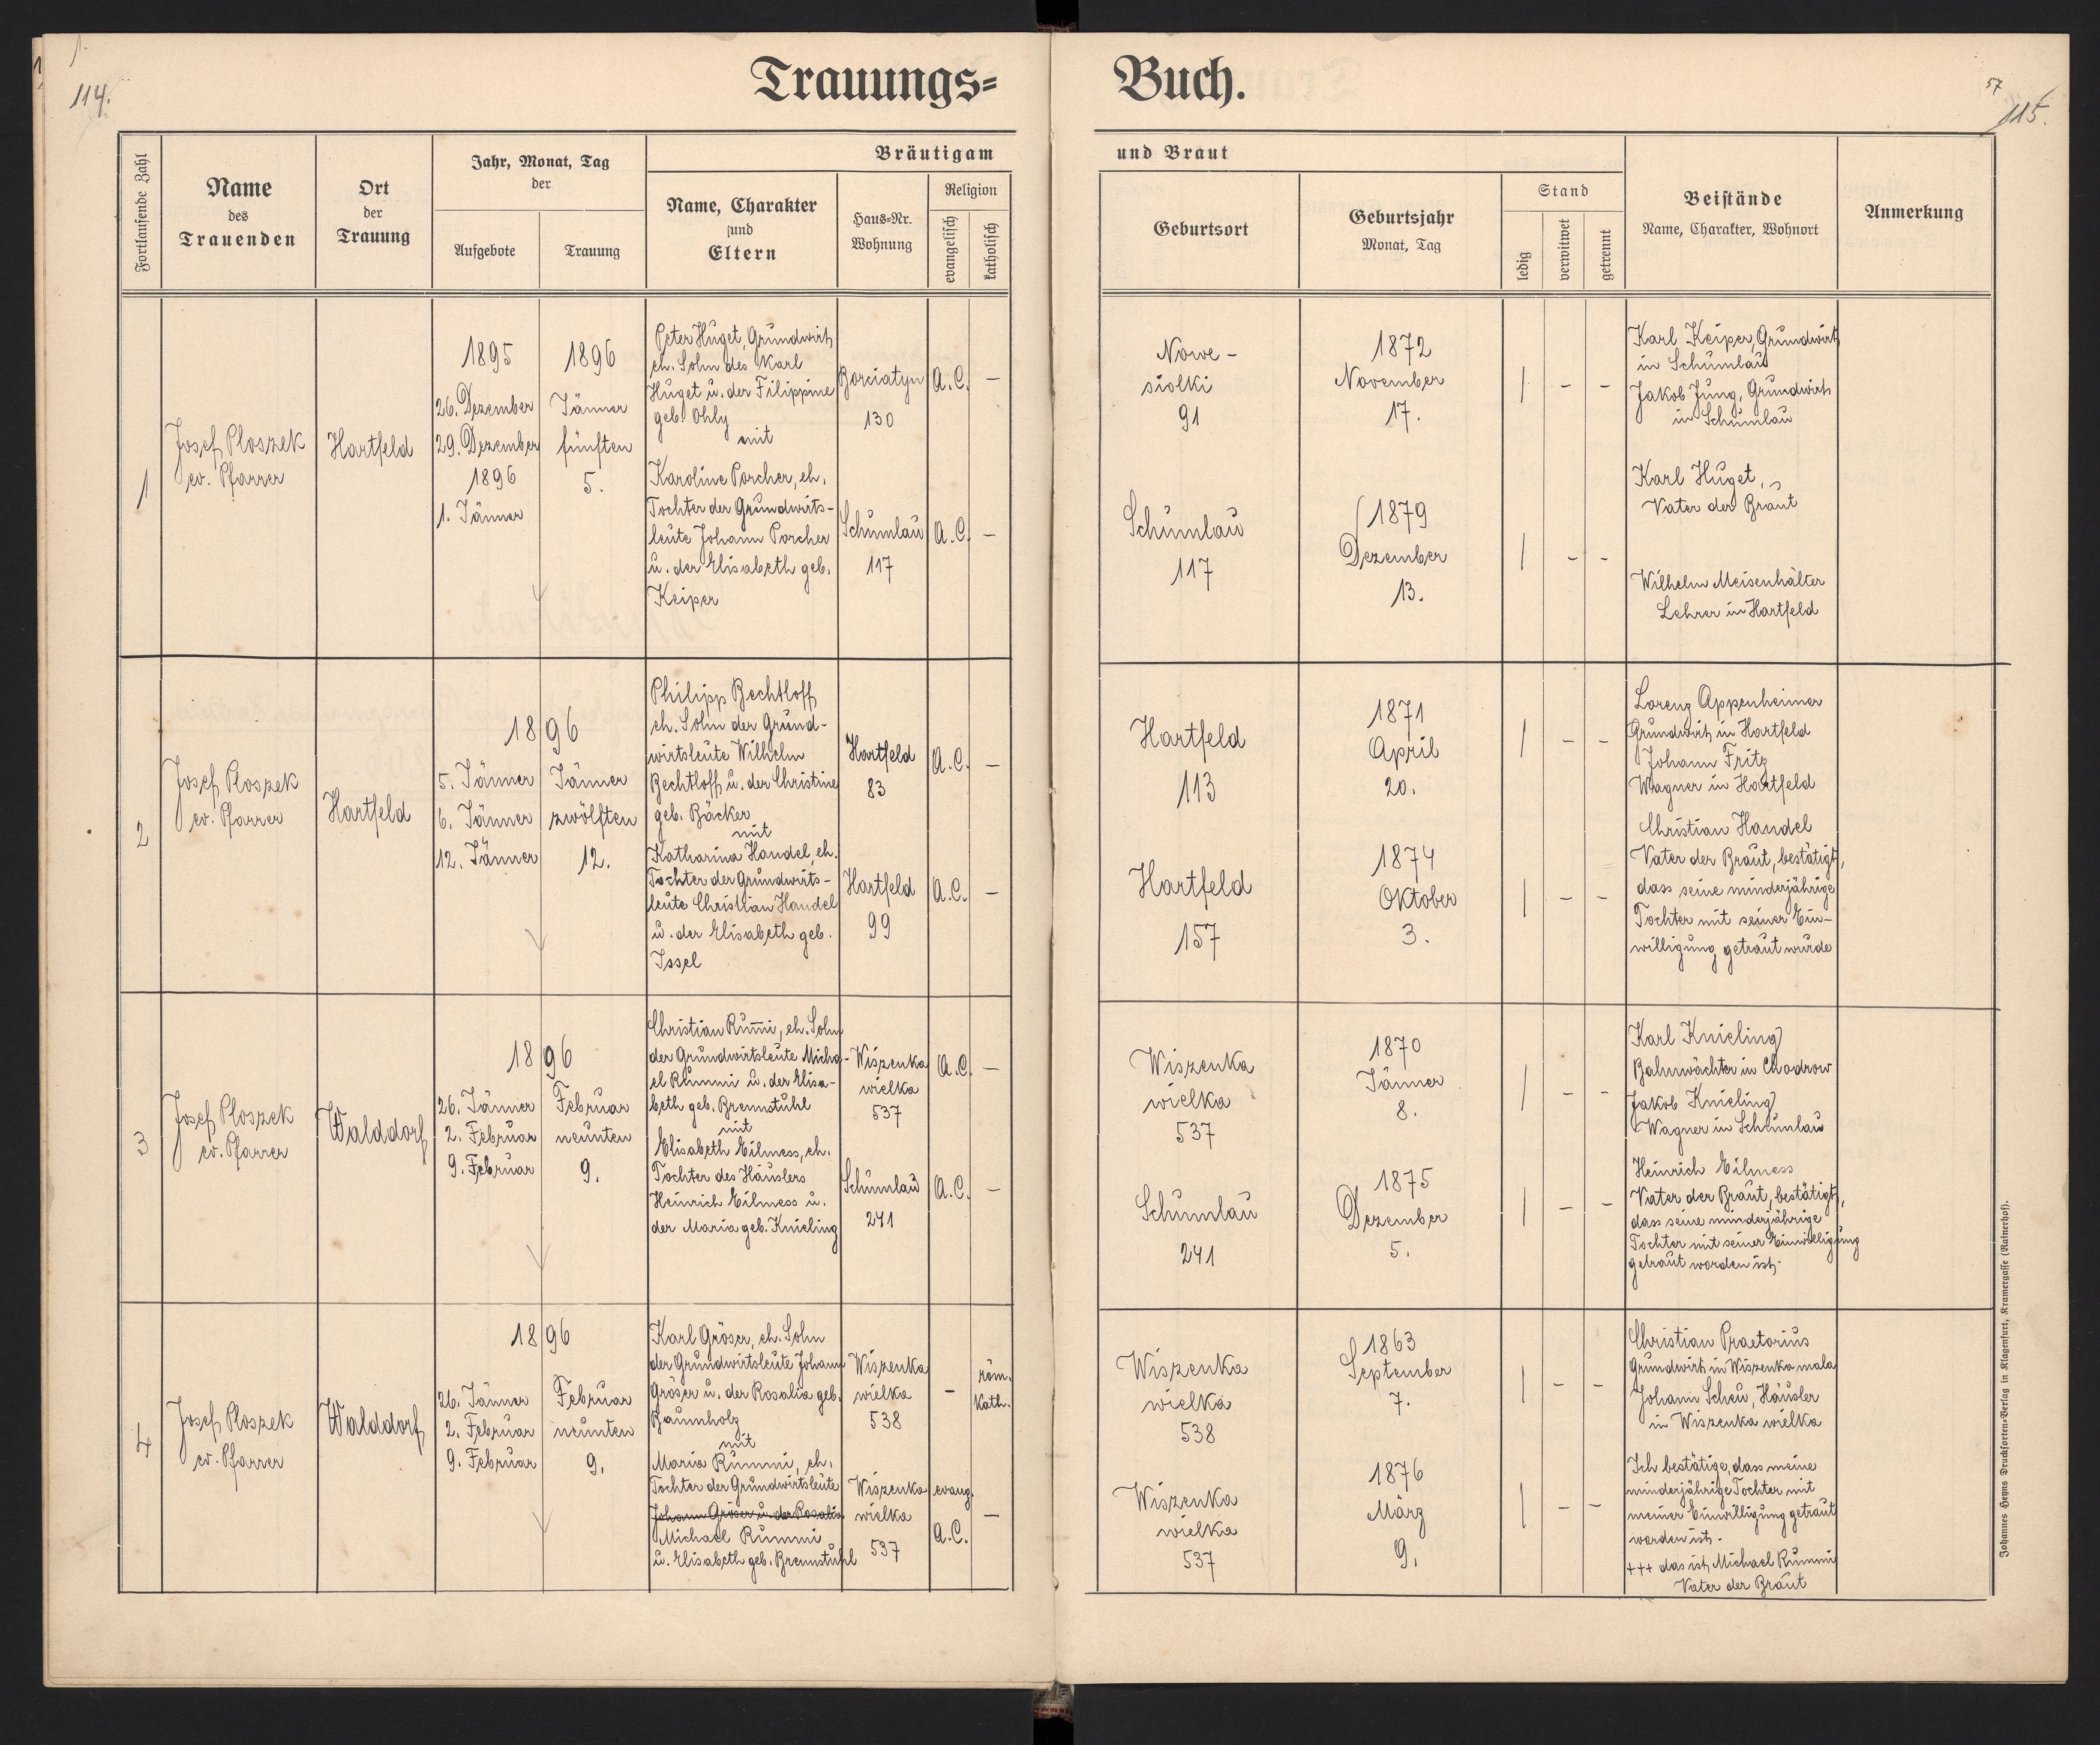 Trauungs=
Buch.
114.
57
115.
Fortlaufende Zahl
Name
des
Trauenden
Ort
der
Trauung
Jahr, Monat, Tag
der
Aufgebote
Trauung
Bräutigam
Name, Charakter
und
Eltern
Haus=Nr.
Wohnung
Religion
evangelisch
katholisch
und Braut
Geburtsort
Geburtsjahr
Monat, Tag
Stand
ledig
verwitwet
getrennt
Beistände
Name, Charakter, Wohnort
Anmerkung
1
Josef Ploszek
ev. Pfarrer
Hartfeld
1895
26. Dezember
29. Dezember
1896
1. Jänner
1896
Jänner
fünften
5.
Peter Huget, Grundwirt
eh. Sohn des Karl
Huget u. der Filippine
geb. Ohly
mit
Karoline Porcher, eh.
Tochter der Grundwirts-
leute Johann Porcher
u. der Elisabeth geb.
Keiper
Borciatyn
130
A.C.
-
Schumlau
117
A.C.
-
Nowe-
siolki
91
1872
November
17.
| - -
Schumlau
117
1879
Dezember
13.
| - -
Karl Keiper, Grundwirt
in Schumlau
Jakob Jung, Grundwirt
in Schumlau
Karl Huget,
Vater der Braut
Wilhelm Meisenhälter
Lehrer in Hartfeld
2
Josef Ploszek
ev. Pfarrer
Hartfeld
1896
5. Jänner
6. Jänner
12. Jänner
Jänner
zwölften
12.
Philipp Bechtloff
eh. Sohn der Grund-
wirtsleute Wilhelm
Bechtloff u. der Christine
geb. Bäcker
mit
Katharina Handel, eh.
Tochter der Grundwirts-
leute Christian Handel
u. der Elisabeth geb.
Issel
Hartfeld
83
A.C.
-
Hartfeld
99
A.C.
-
Hartfeld
113
1871
April
20.
| - -
Hartfeld
157
1874
Oktober
3.
| - -
Lorenz Appenheimer
Grundwirt in Hartfeld
Johann Fritz
Wagner in Hartfeld
Christian Handel
Vater der Braut, bestätigt,
dass seine minderjährige
Tochter mit seiner Ein-
willigung getraut wurde
3
Josef Ploszek
ev. Pfarrer
Walddorf
1896
26. Jänner
2. Februar
9. Februar
Februar
neunten
9.
Christian Rum̅i, eh. Sohn
der Grundwirtsleute Micha-
el Rummi u. der Elisa-
beth geb. Brennstuhl
mit
Elisabeth Eilmess, eh.
Tochter des Häuslers
Heinrich Eilmess u.
der Maria geb. Knieling
Wiszenka
wielka
537
A.C.
-
Schumlau
241
A.C.
-
Wiszenka
wielka
537
1870
Jänner
8.
| - -
Schumlau
241
1875
Dezember
5.
| - -
Karl Knieling
Bahnwächter in Chodrow
Jakob Knieling
Wagner in Schumlau
Heinrich Eilmess
Vater der Braut, bestätigt,
dass seine minderjährige
Tochter mit seiner Einwilligung
getraut worden ist.
4
Josef Ploszek
ev. Pfarrer
Walddorf
1896
26. Jänner
2. Februar
9. Februar
Februar
neunten
9.
Karl Gröser, eh. Sohn
der Grundwirtsleute Johann
Gröser u. der Rosalia geb.
Baumholz
mit
Maria Rummi, eh.
Tochter der Grundwirtsleute
Johann Gröser u. der Rosalia
Michael Rummi
u. Elisabeth geb. Brennstuhl
Wiszenka
wielka
538
-
röm.
kath.
Wiszenka
wielka
537
evang.
A.C.
-
Wiszenka
wielka
538
1863
September
7.
| - -
Wiszenka
wielka
537
1876
März
9.
| - -
Christian Praetorius
Grundwirt in Wiszenka mala
Johann Scheu, Häusler
in Wiszenka wielka
Ich bestätige, dass meine
minderjährige Tochter mit
meiner Einwilligung getraut
worden ist.
+++ das ist Michael Rummi
Vater der Braut
Johannes Heyns Drucksorten=Verlag in Klagenfurt, Kramergasse (Rainerhof).